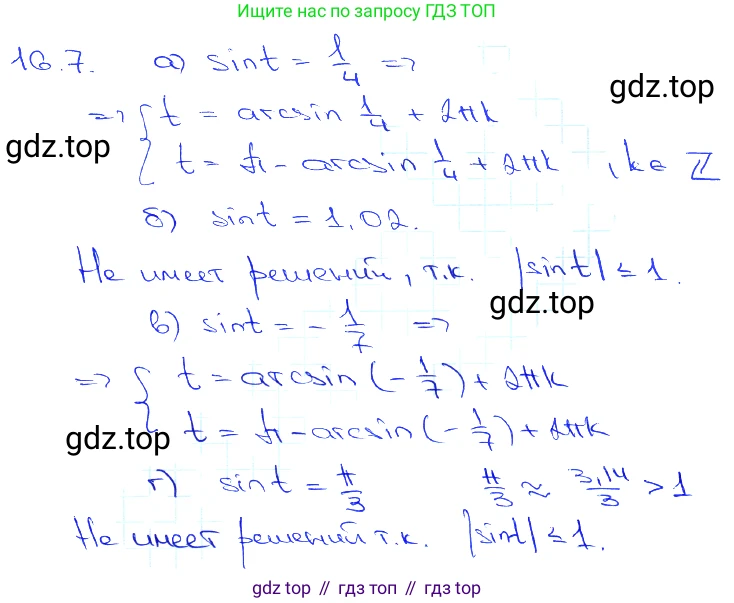 Ищите нас по запросу ГДЗ ТОП
16.7. а) sin t = 1/4 =>
gdz.top
=> { t = arcsin 1/4 + 2πk
gdz.top
t = π - arcsin 1/4 + 2πk , k ∈ Z
б) sin t = 1,02.
Не имеет решений, т.к. |sin t| ≤ 1.
gdz.top
в) sin t = - 1/7 =>
=> { t = arcsin (- 1/7) + 2πk
t = π - arcsin (- 1/7) + 2πk
gdz.top
г) sin t = π/3 π/3 ≈ 3,14/3 > 1
Не имеет решений т.к. |sin t| ≤ 1.
gdz.top // гдз топ // gdz.top